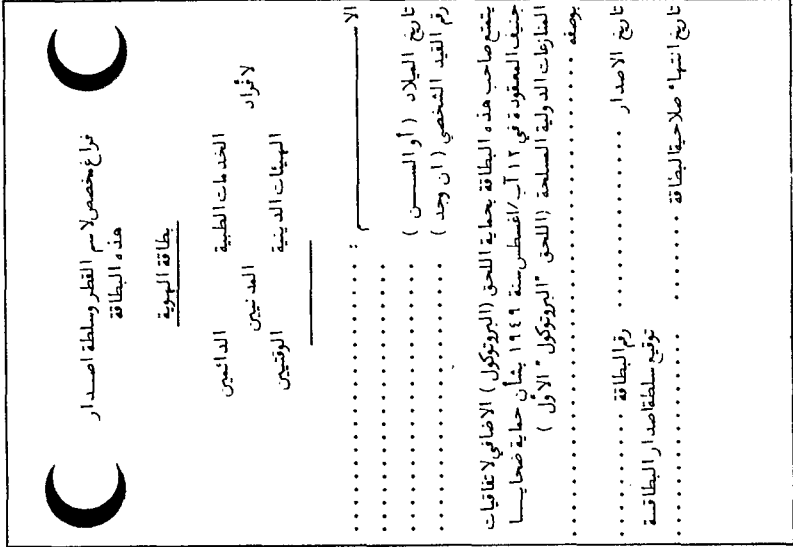 فراغ مخصص لاسم القطر وسلطة اصدار
هذه البطاقة
بطاقة الهوية
لأفراد
الخدمات الطبية الدائمين
المدنيين
الهيئات الدينية الوقتيين
الاســـــم : . . . . . . . . . . . . . . .
. . . . . . . . . . . . . . .
تاريخ الميلاد ( أو الســن ) . . . . . . . . . . . . . . .
رقم القيد الشخصي ( ان وجد ) . . . . . . . . . . . . . . .
يتمتع صاحب هذه البطاقة بحماية اللحق (البروتوكول ) الاضافي لاتفاقيات
جنيف المعقودة في ١٢ آب/اغسطس سنة ١٩٤٩ بشأن حماية ضحايــا
المنازعات الدولية المسلحة (اللحق "البروتوكول " الأول )
بوصفه . . . . . . . . . . . . . . . . . . . . . . . . . . . . . .
تاريخ الاصدار . . . . . . . . . . رقم البطاقة . . . . . . . . . .
توقيع سلطة اصدار البطاقــة
تاريخ انتهاء صلاحية البطاقة . . . . . . . . . . . . . . . . . . . .